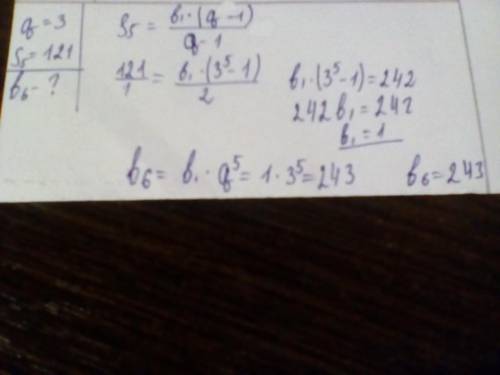 q = 3
S₅ = 121
b₆ - ?
S₅ = b₁ · (q - 1) / q - 1
121/1 = b₁ · (3⁵ - 1) / 2
b₁ · (3⁵ - 1) = 242
242 b₁ = 242
b₁ = 1
b₆ = b₁ · q⁵ = 1 · 3⁵ = 243
b₆ = 243